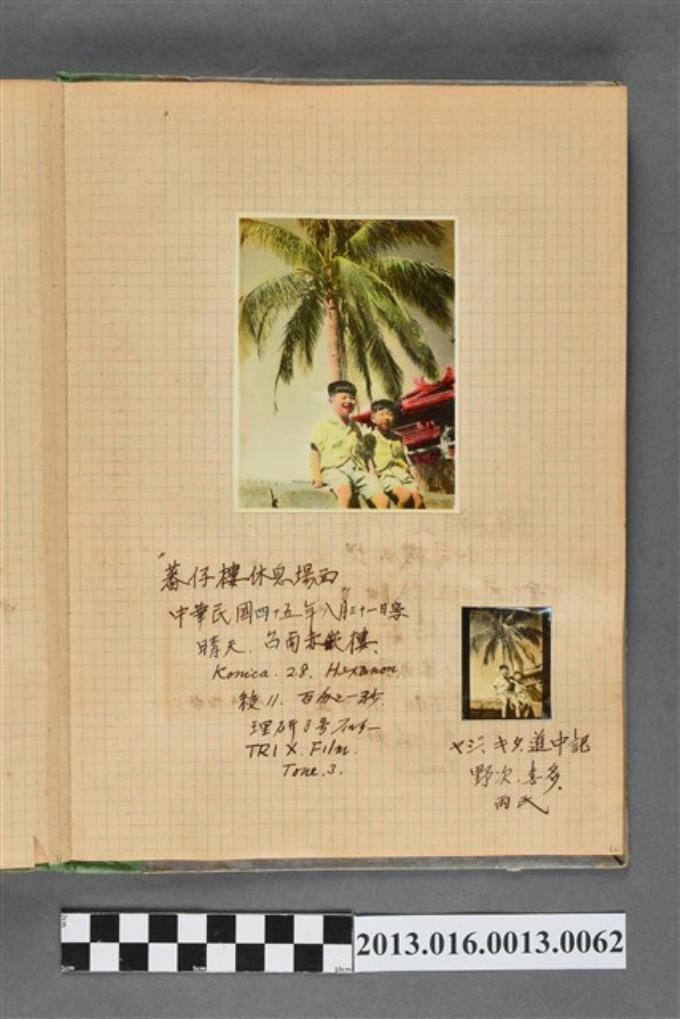 "蕃仔樓休息場面
中華民國四十五年八月三十一日寫
晴天. 台南赤嵌樓、
Konica. 28. Hexanon
綾11. 百分之一秒
理研3号
TRI X. Film.
Tone. 3.
ヤジ、キタ、道中記
野次、喜多、
両氏
2013.016.0013.0062
0cm
5cm
10cm